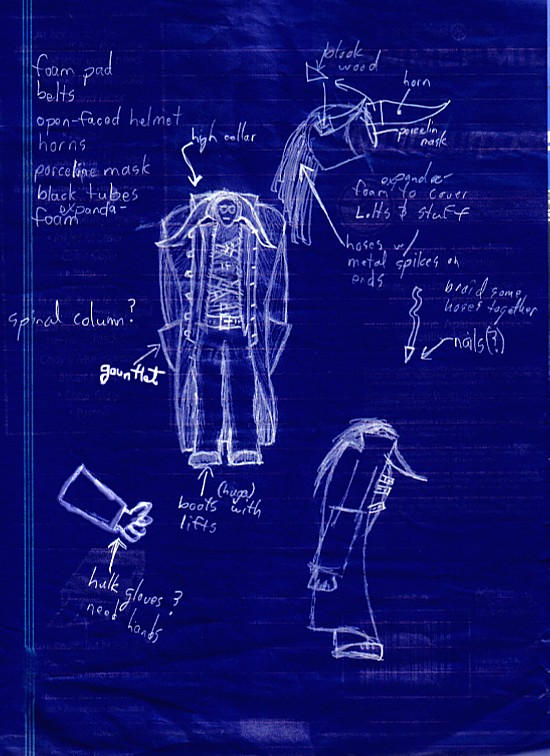 foam pad
belts
open-faced helmet
horns
porceline mask
black tubes
expanda-
foam
high collar
block
wood
horn
porcelin
mask
expanda-
foam to cover
bolts & stuff
hoses w/
metal spikes on
ends
braid some
hoses together
nails(?)
spinal column?
gauntlet
(huge)
boots with
lifts
hulk gloves?
need hands